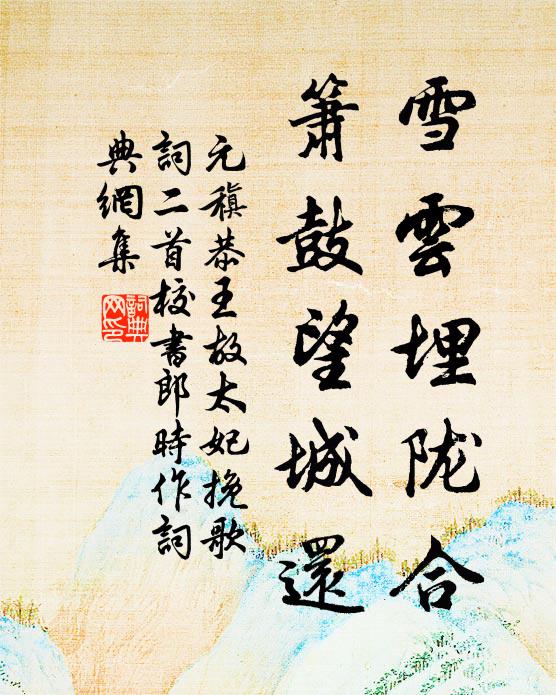 雪雲埋陇合
簫鼓望城還
元稹恭王故太妃挽歌
詞二首校書郎時作詞
典網集
詞典網印